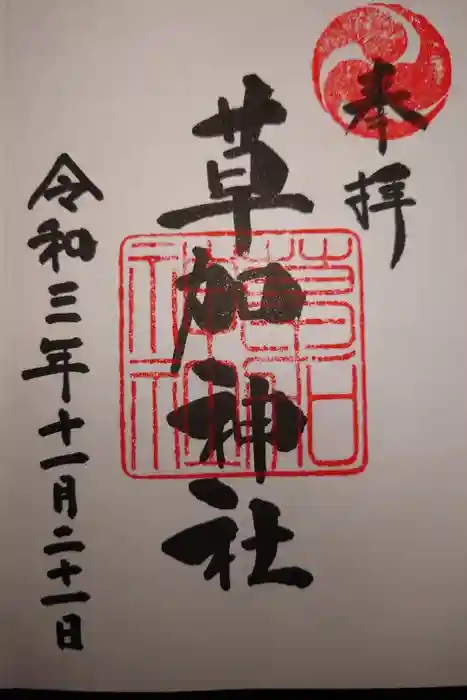 奉拝
草加神社
令和三年十一月二十一日